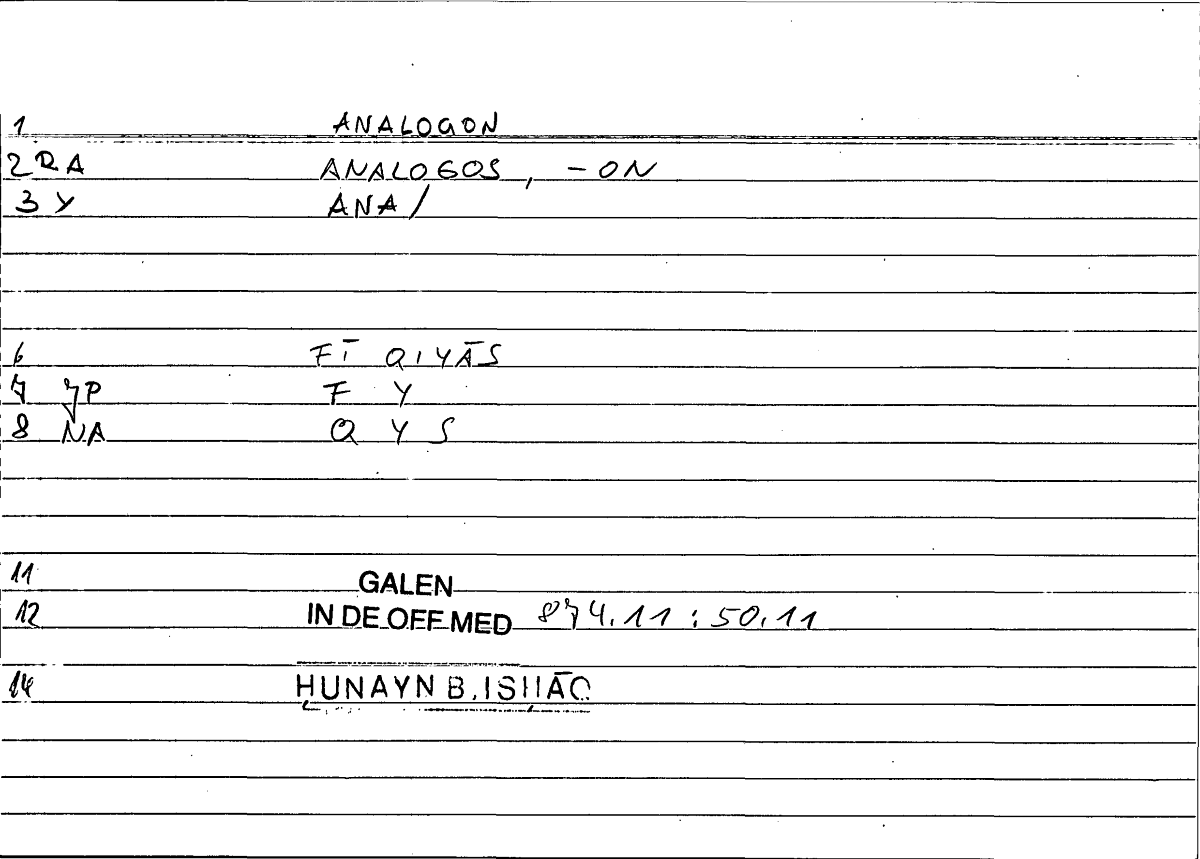 1 ANALOGON
2 RA ANALOGOS, -ON
3 Y ANA/
6 FĪ QIYĀS
7 JP F Y
8 NA Q Y S
11 GALEN
12 IN DE OFF MED 874.11 : 50.11
14 ḤUNAYN B. ISḤĀQ